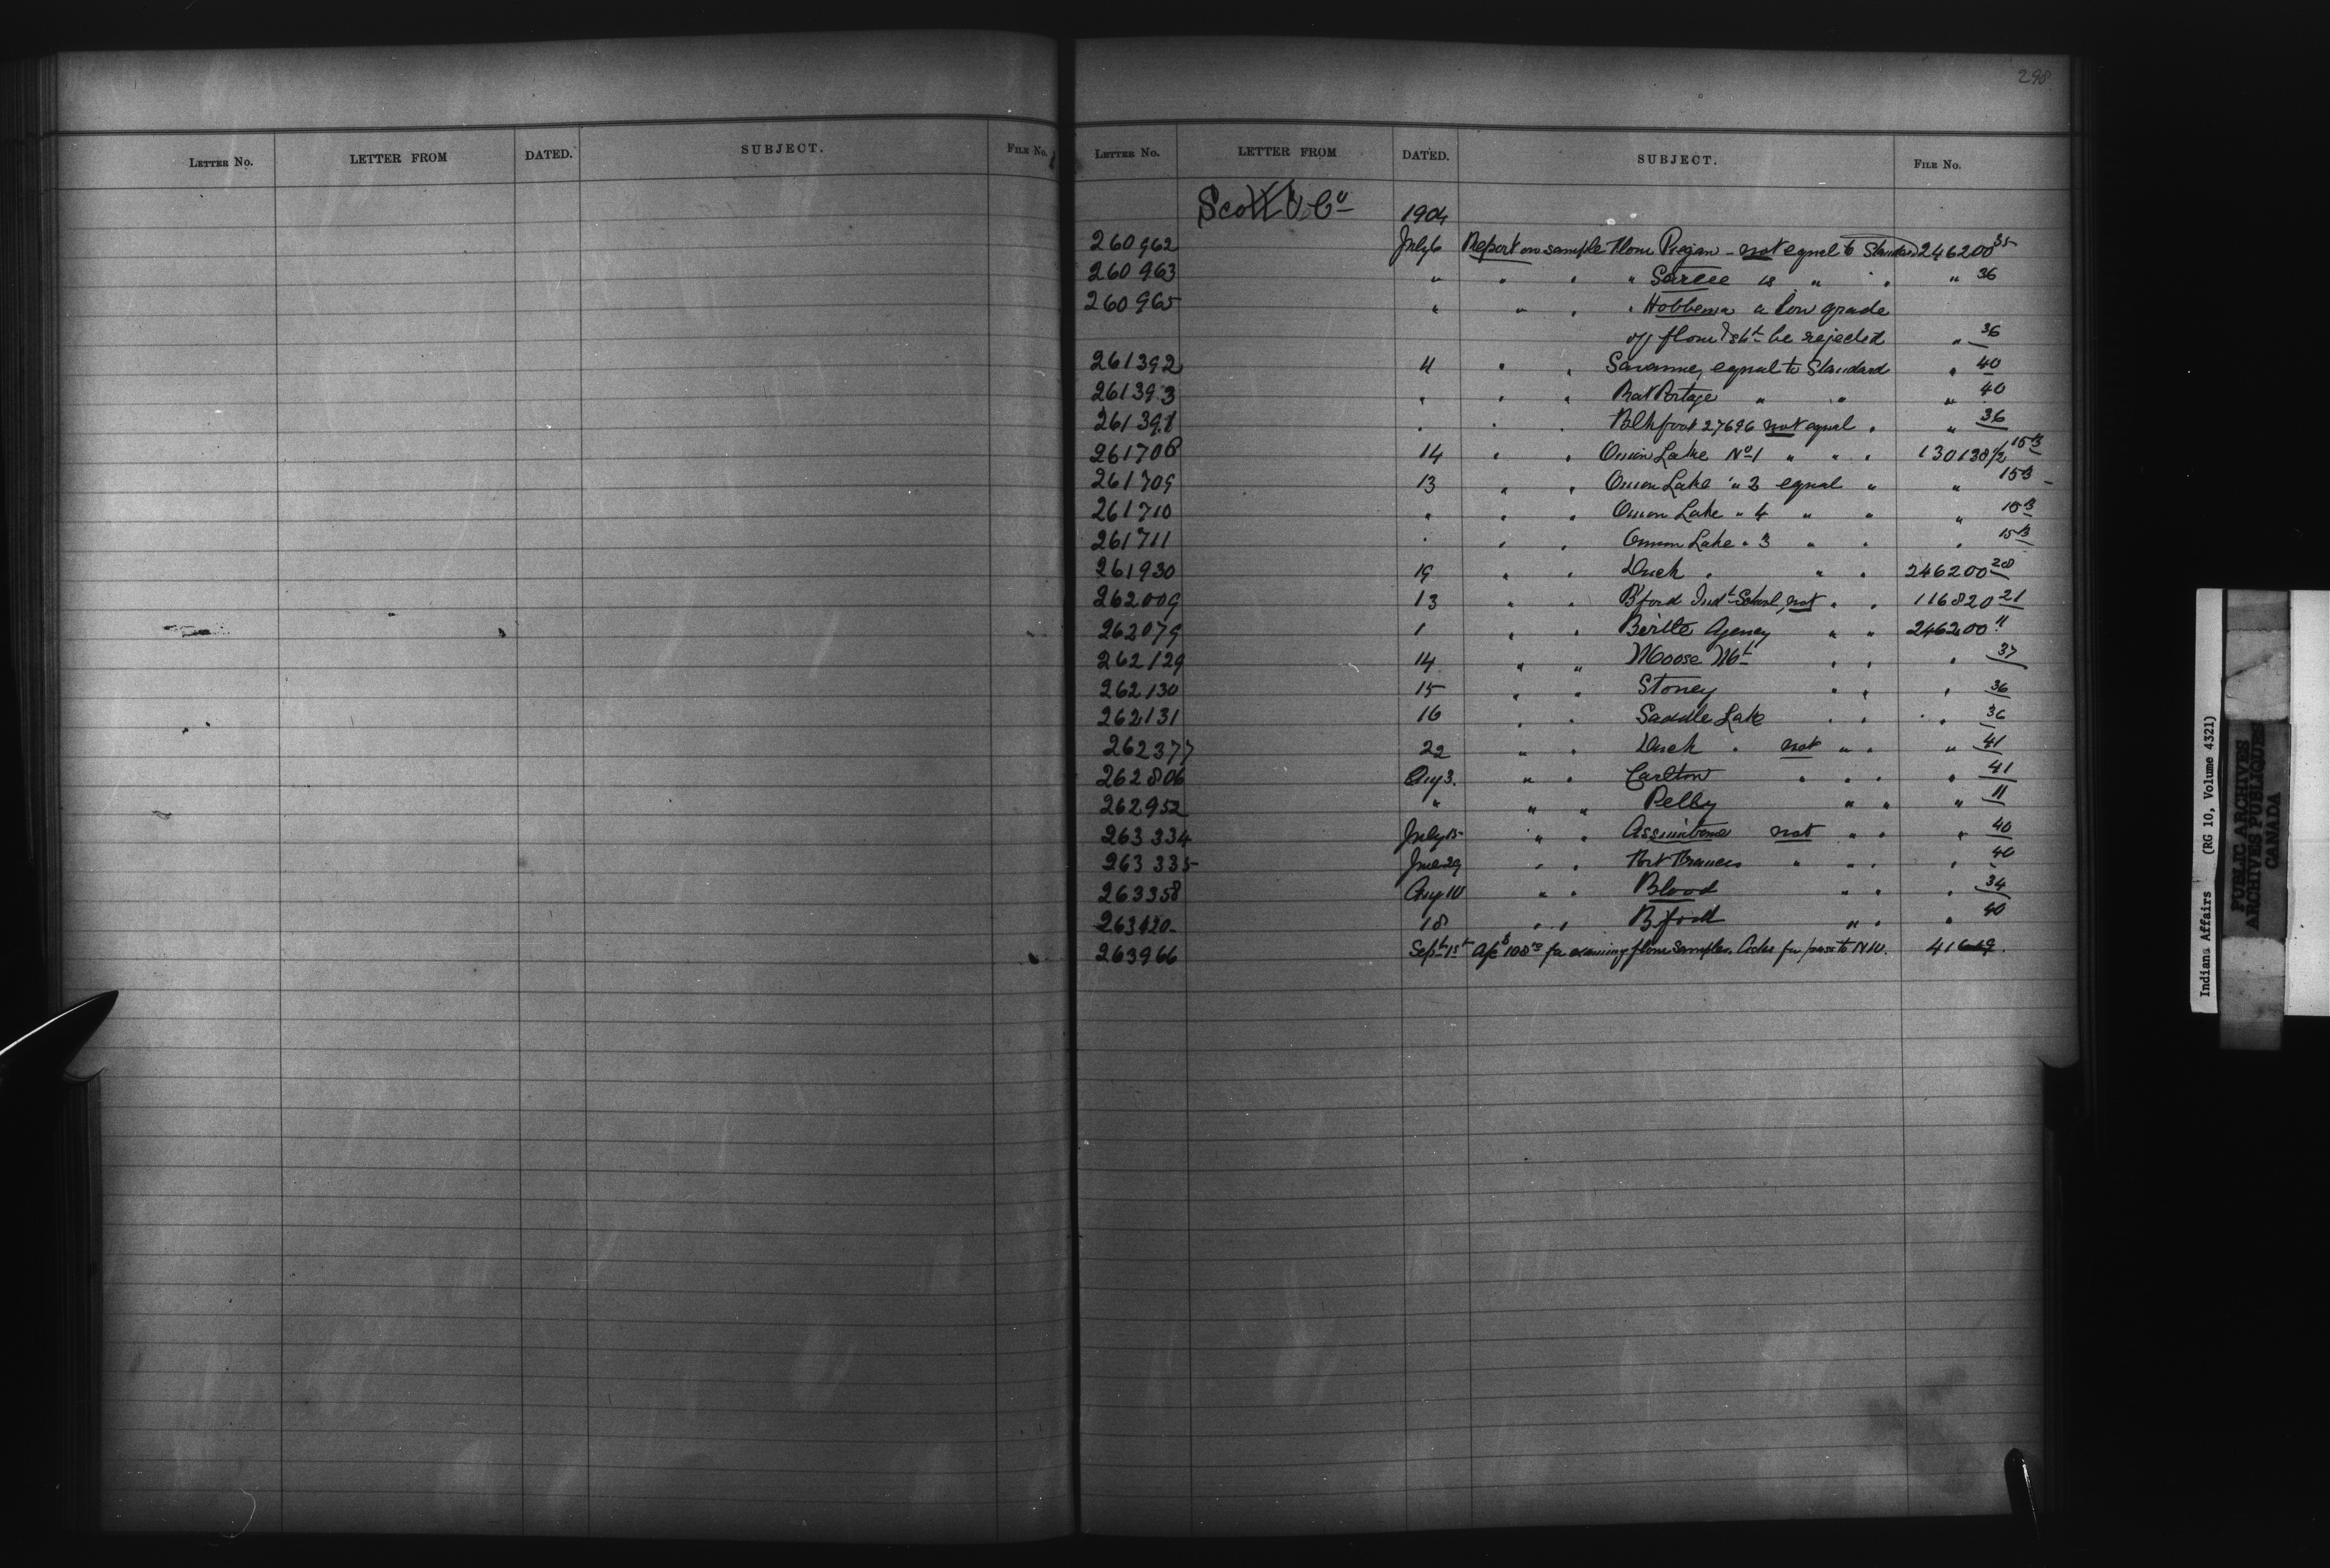 298
LETTER NO. LETTER FROM DATED. SUBJECT. FILE NO.
LETTER NO. LETTER FROM DATED. SUBJECT. FILE NO.
Scott & Co
1904
260962 July 6 Report on sample flour Piegan - not equal to Standard 246200 35
260963 " " " " Sarcee is " " " 36
260965 " " " " Hobbema a low grade
of flour & sht be rejected " 36
261392 11 " " Savanne, equal to Standard " 40
261393 " " " Rat Portage " " " 40
261398 " " " Blkfoot 27696 not equal " " 36
261708 14 " " Onion Lake No 1 " " " 130138 1/2 15B
261709 13 " " Onion Lake " 2 equal " " 15B
261710 " " " Onion Lake " 4 " " " 15B
261711 " " " Onion Lake " 3 " " " 15B
261930 19 " " Duck " " " 246200 28
262009 13 " " B'ford Indl School, not " " 116820 21
262079 1 " " Birtle Agency " " 246200 11
262129 14 " " Moose Mt " " " 37
262130 15 " " Stoney " " " 36
262131 16 " " Saddle Lake " " " 36
262377 22 " " Duck " not " " " 41
262806 Aug 3. " " Carlton " " " " 41
262952 " " " Pelly " " " 11
263334 July 15 " " Assiniboine not " " " 40
263335 June 29 " " Fort Frances " " " " 40
263358 Aug 10 " " Blood " " " 34
263420 18 " " B'ford " " " 40
263966 Sept 1st for examining flour samples. Asks for pass to N.W. 41619.
Indians Affairs (RG 10, Volume 4321)
PUBLIC ARCHIVES
ARCHIVES PUBLIQUES
CANADA